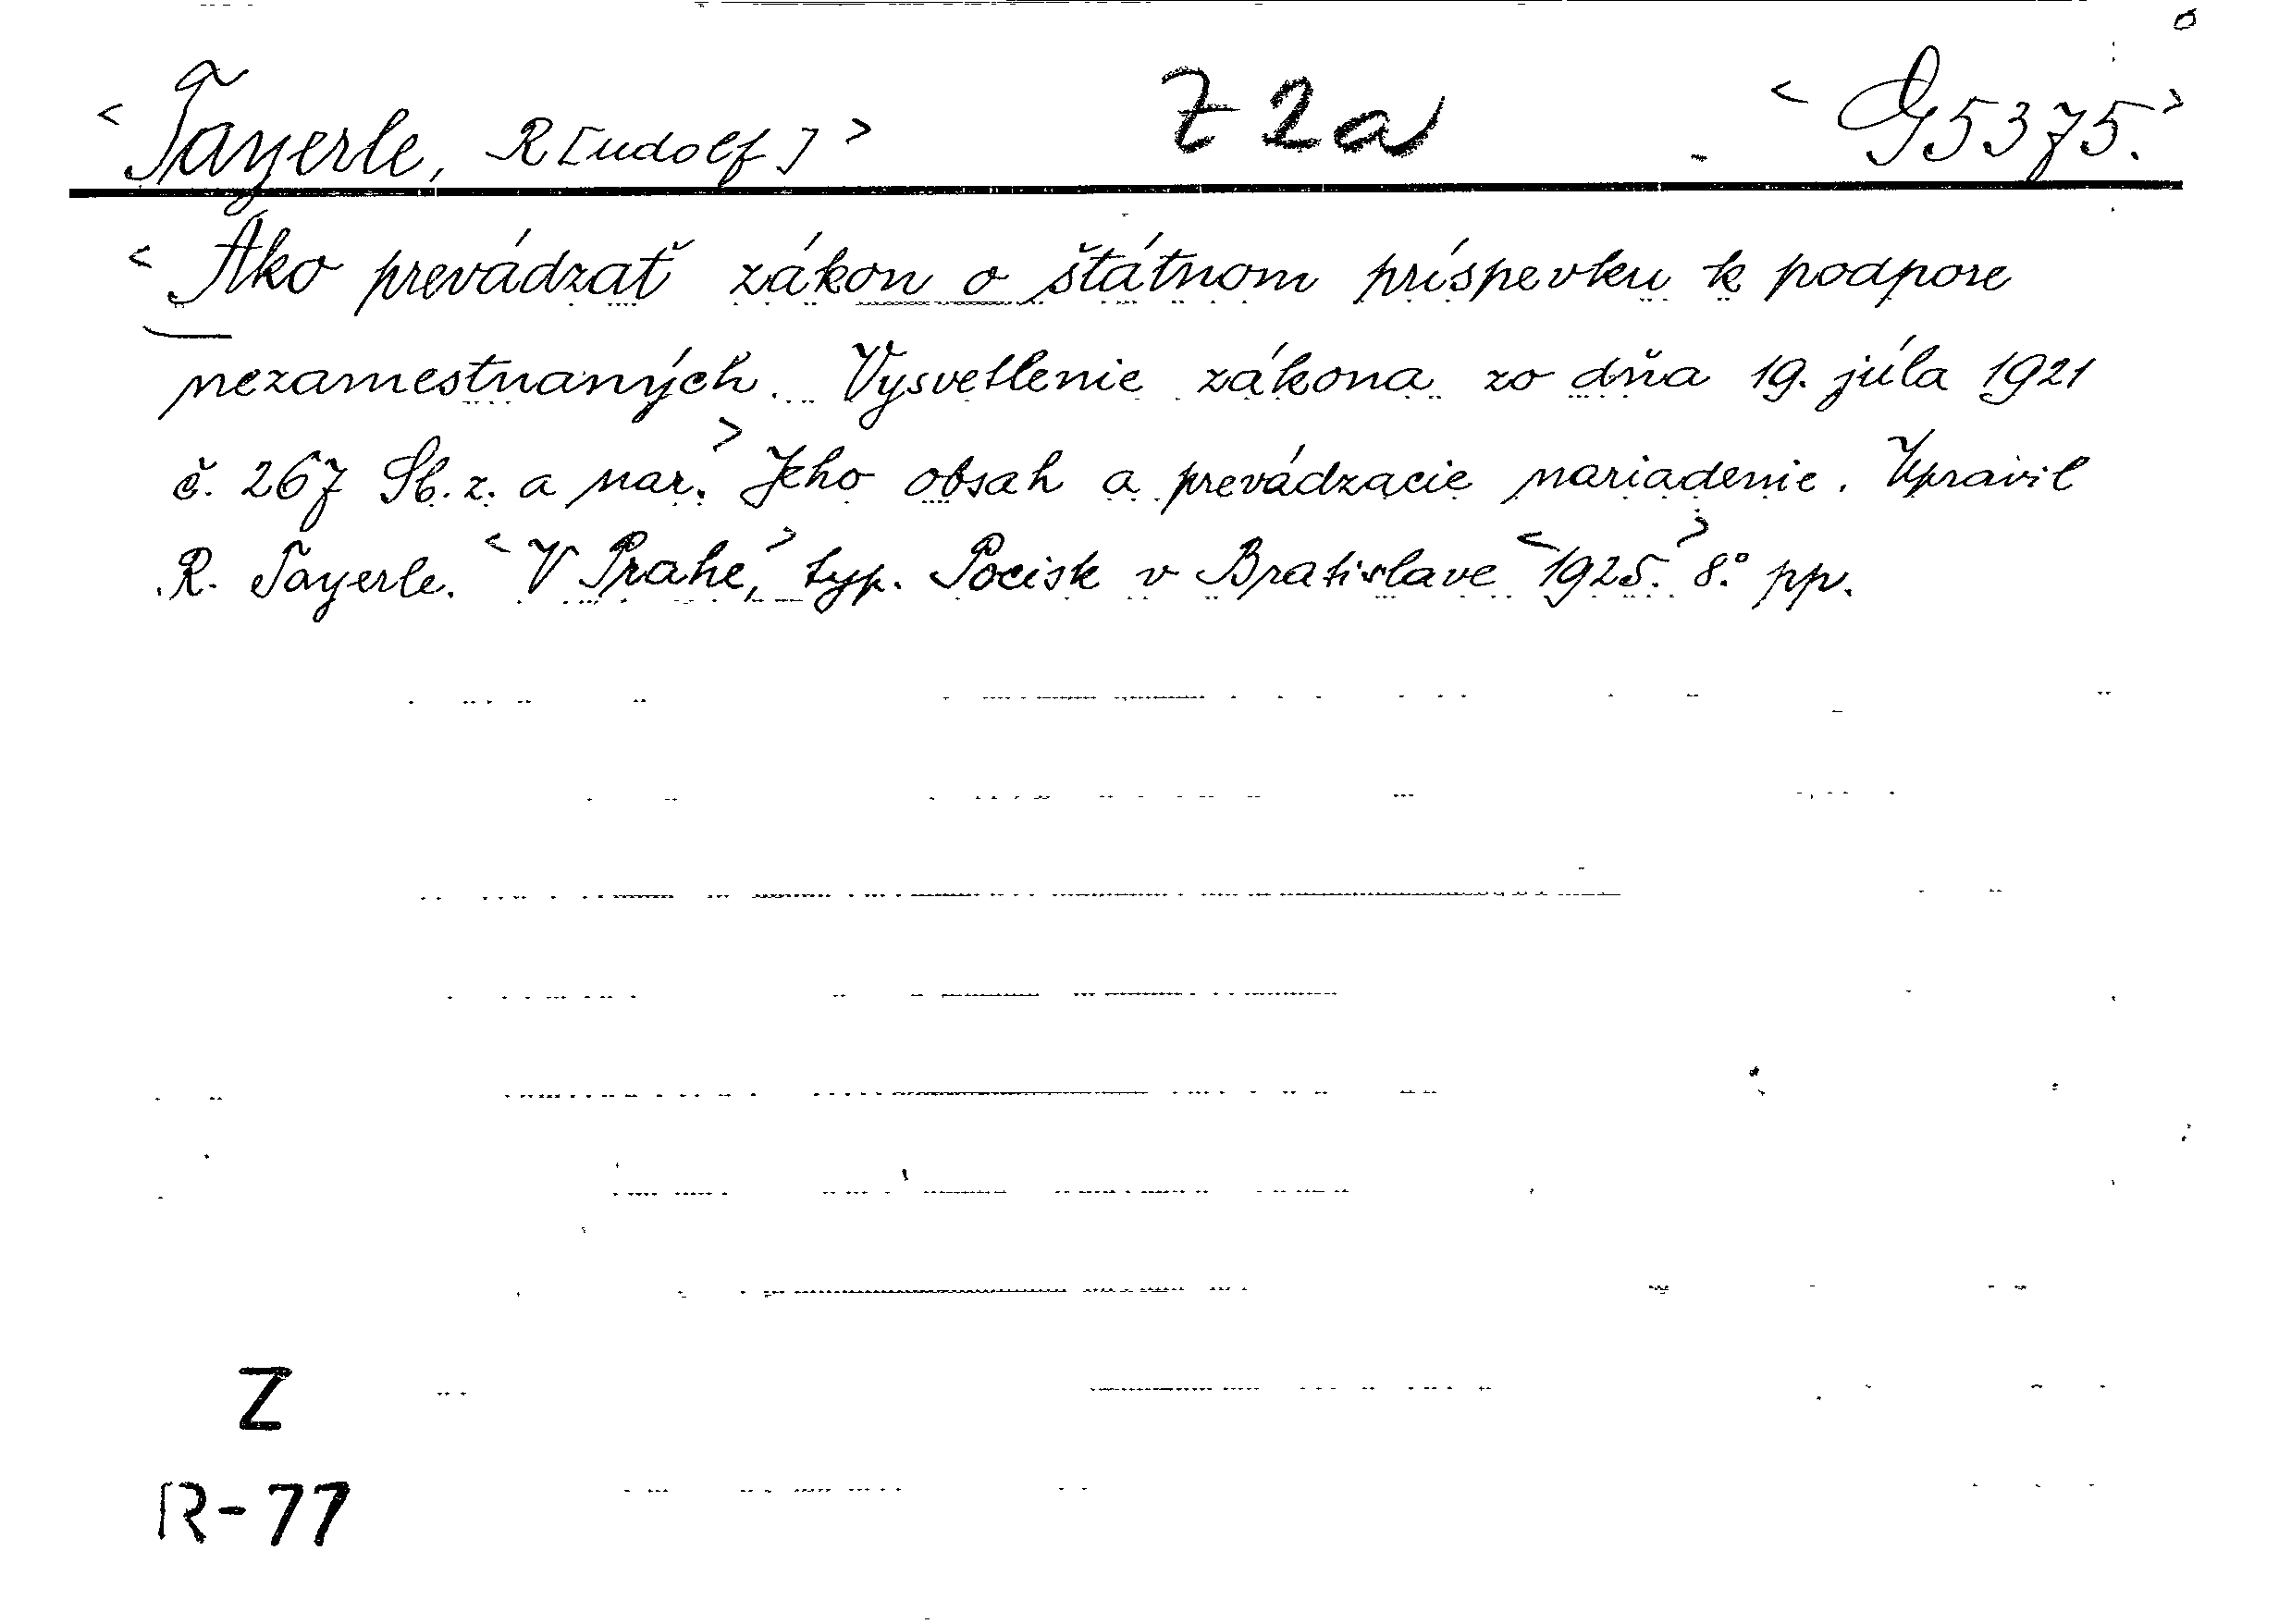 <Tayerle, R[udolf]> Z 2a <G 5375.>
<Ako prevádzať zákon o štátnom príspevku k podpore
nezamestnaných. Vysvetlenie zákona zo dňa 19. júla 1921
č. 267 Sb. z. a nar.> Jeho obsah a prevádzacie nariadenie. Upravil
R. Tayerle. <V Prahe,> typ. Pocisk v Bratislave <1925.> 8.° pp.
Z
R-77